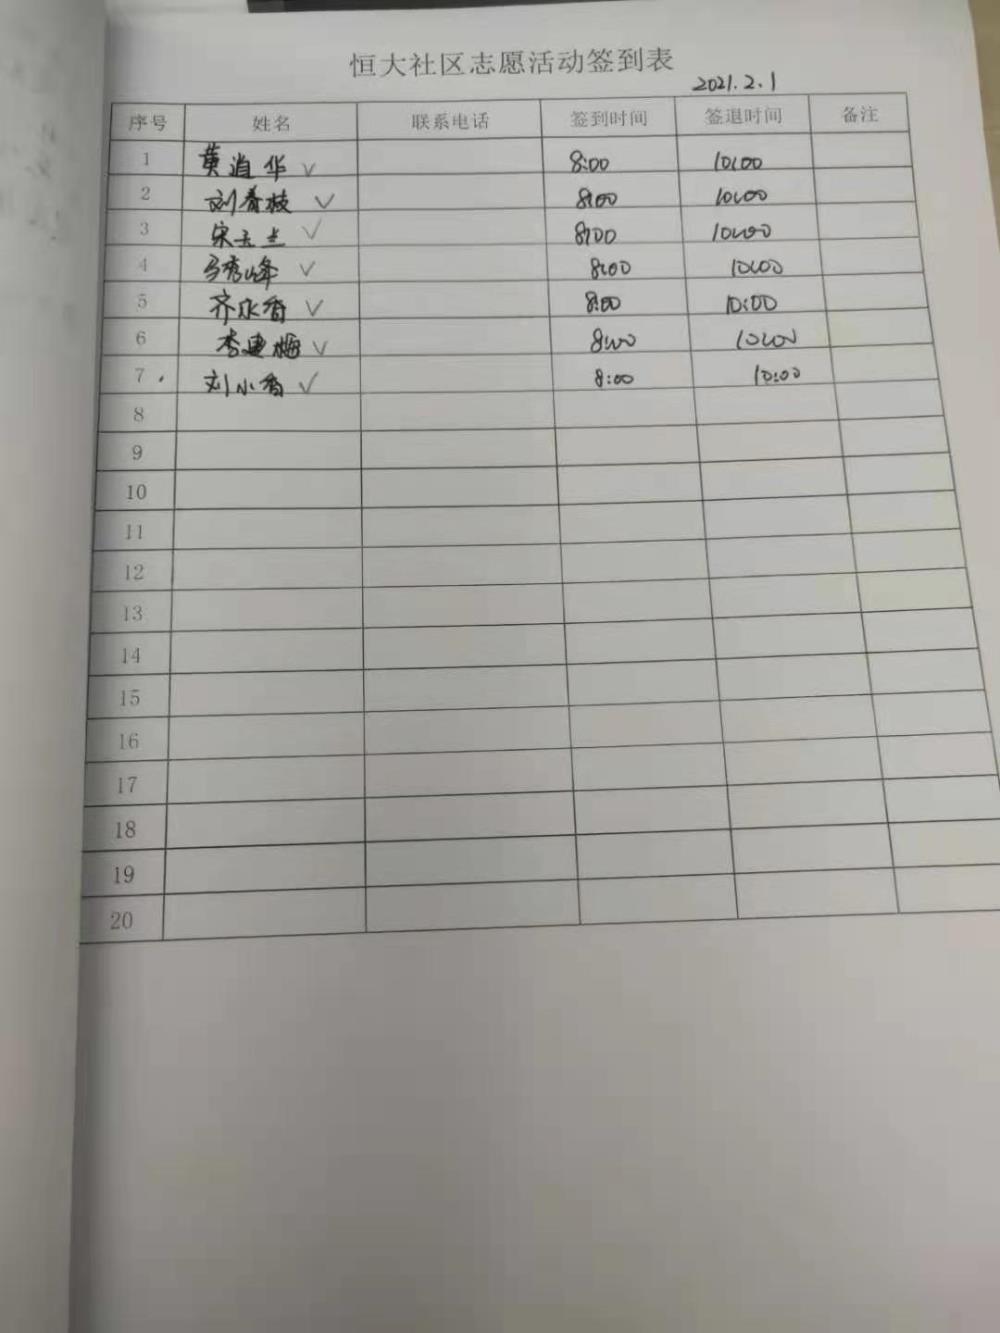 恒大社区志愿活动签到表
2021.2.1
序号 姓名 联系电话 签到时间 签退时间 备注
1 黄 华 ✓ 8:00 10:00
2 刘春枝 ✓ 8:00 10:00
3 宋玉兰 ✓ 8:00 10:00
4 马秀峰 ✓ 8:00 10:00
5 齐永香 ✓ 8:00 10:00
6 李建梅 ✓ 8:00 10:00
7 刘小香 ✓ 8:00 10:00
8
9
10
11
12
13
14
15
16
17
18
19
20